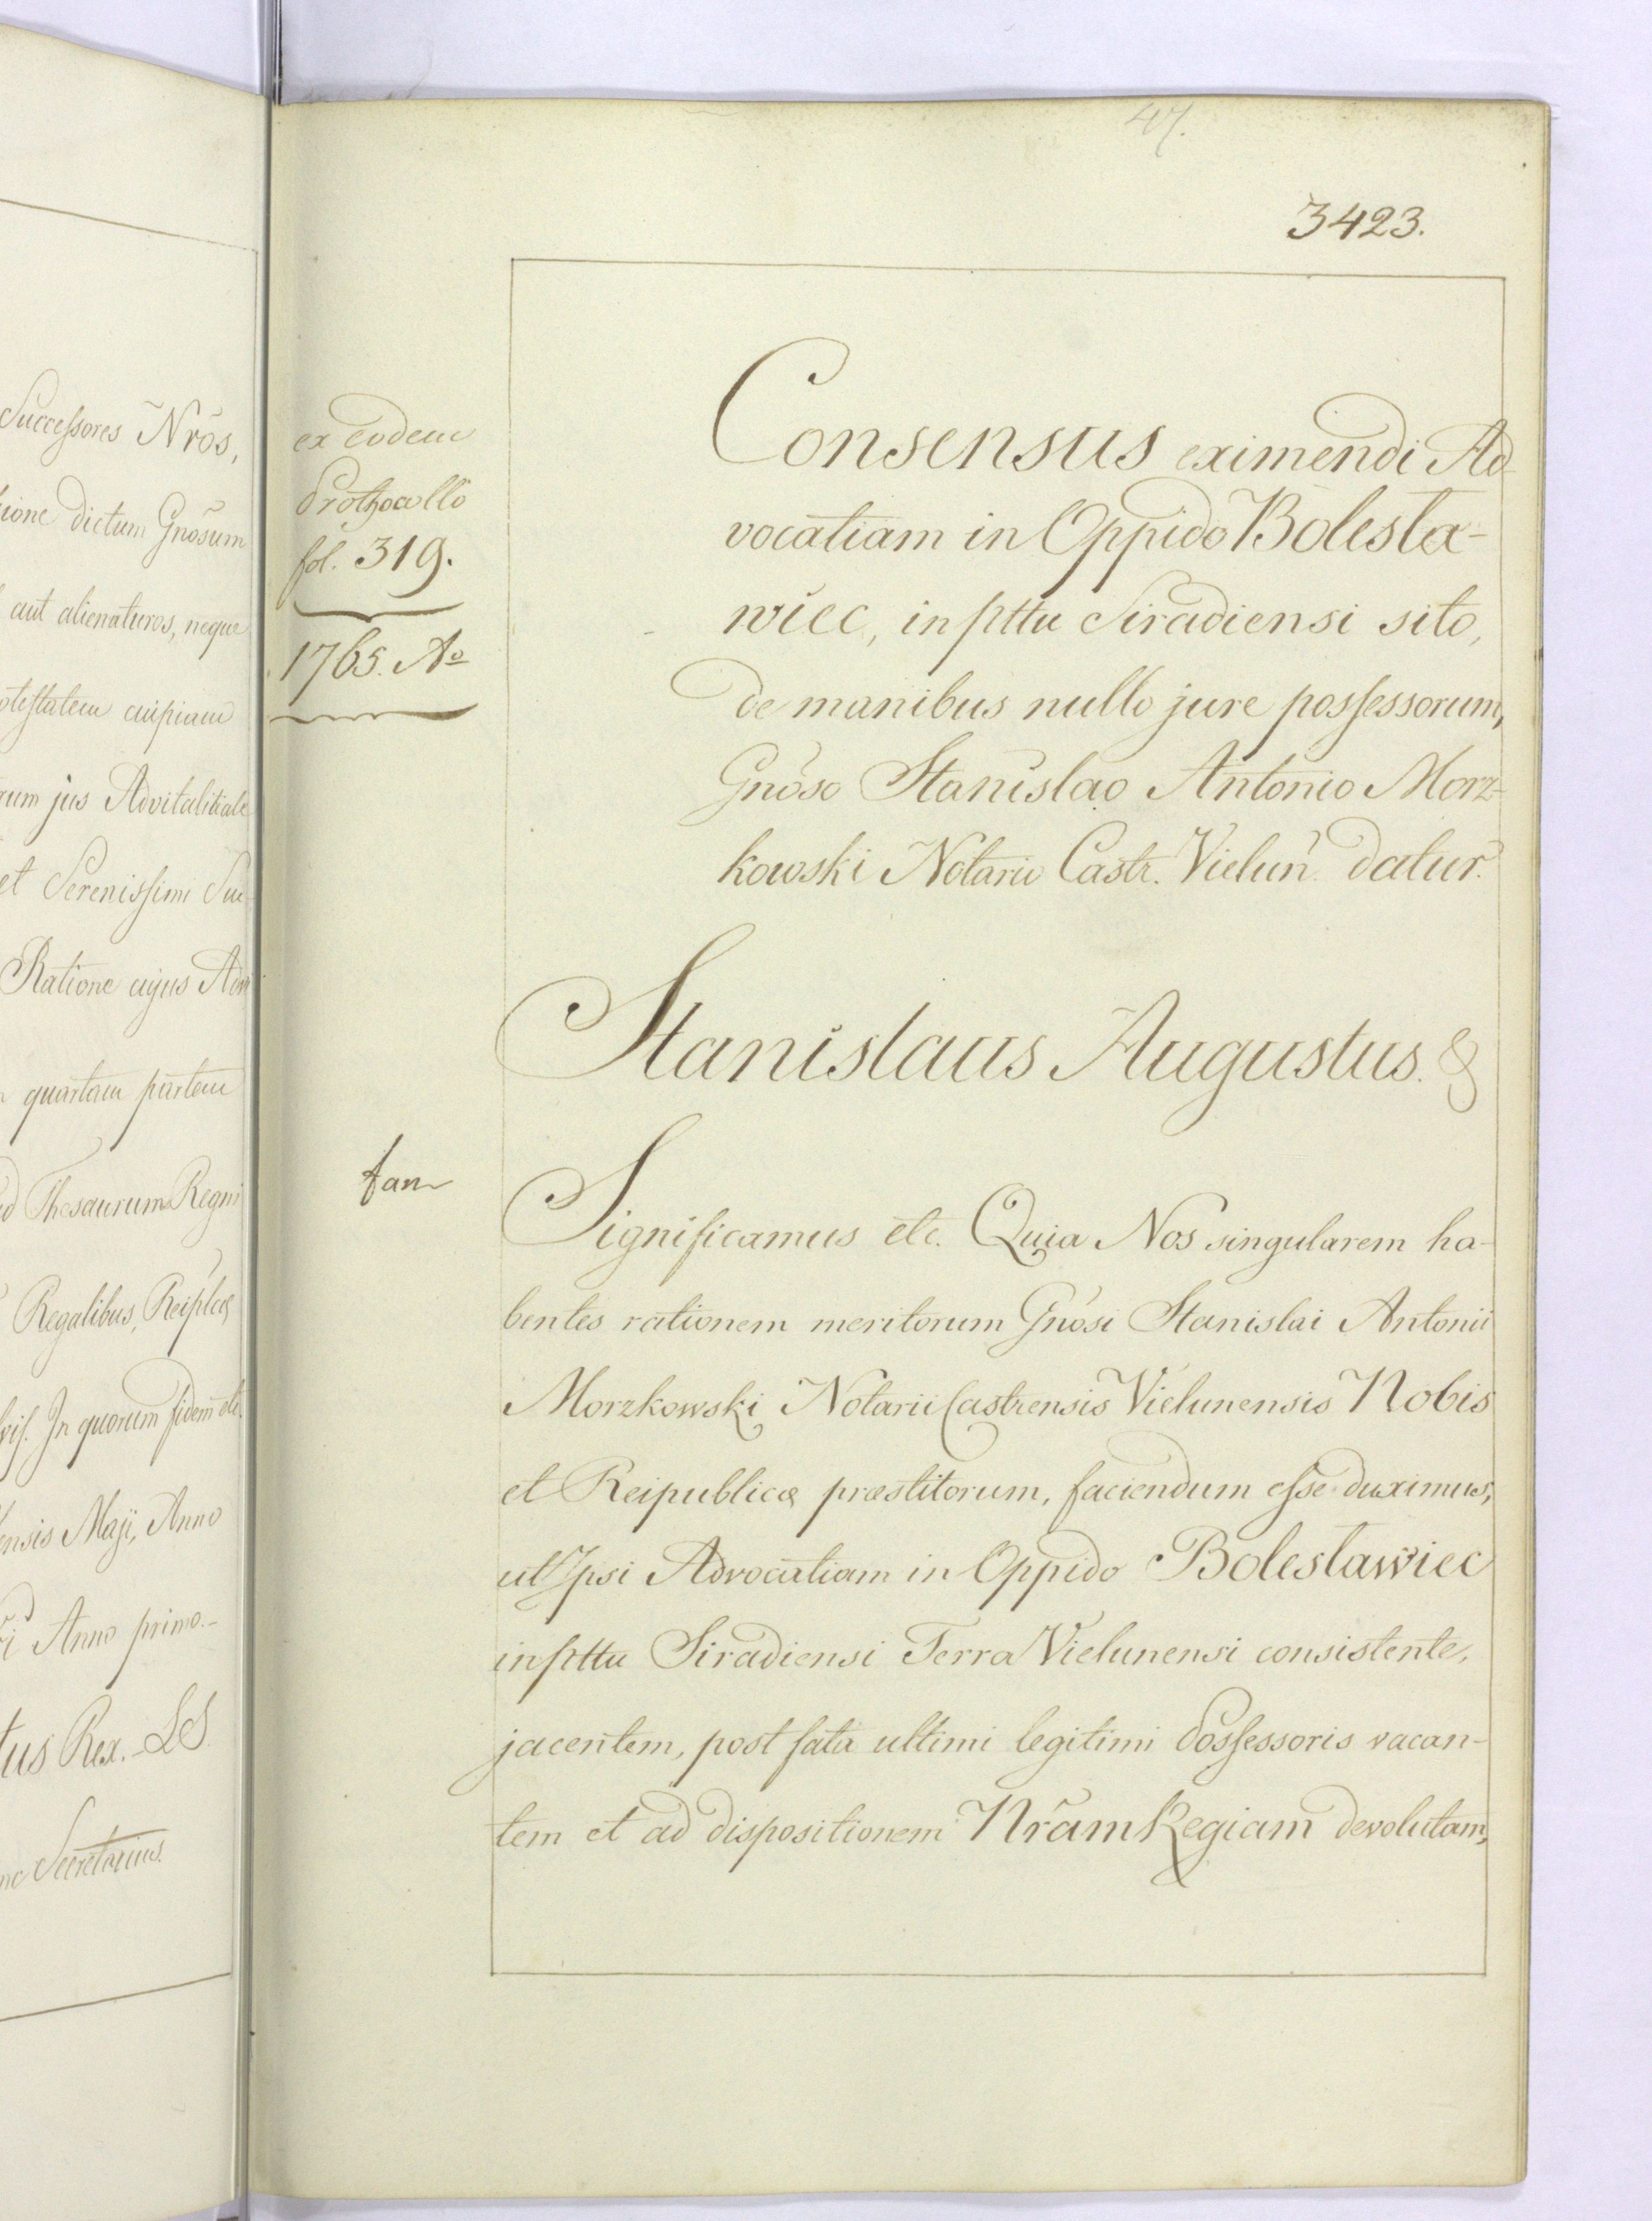 Successores Nrõs,
ione dictum Gnõsum
aut alienaturos, neque
otestatem cuipiam
rum jus Advitalitiale
et Serenissimi Suc-
Ratione cujus Adv
quartam partem
ad Thesaurum Regni
Regalibus, Reiplcæ
vis. In quorum fidem etc.
ensis Maji, Anno
i Anno primo.-
tus Rex.- LS
Secretarius.
47.
3423.
ex eodem
Prothocollo
fol. 319.
1765. Ao
Consensus eximendi Ad-
vocatiam in Oppido Bolesła-
wiec, in pttu Siradiensi sito,
de manibus nullo jure possessorum,
Gnõso Stanislao Antonio Morz-
kowski Notario Castr. Vielun. datur.
Stanislaus Augustus. &
fam
Significamus etc. Quia Nos singularem ha-
bentes rationem meritorum Gnõsi Stanislai Antonii
Morzkowski Notarii Castrensis Vielunensis Nobis
et Reipublicæ præstitorum, faciendum esse duximus,
ut Ipsi Advocatiam in Oppido Bolesławiec
in pttu Siradiensi Terra Vielunensi consistente,
jacentem, post fata ultimi legitimi Possessoris vacan-
tem et ad dispositionem Nrãm Regiam devolutam,